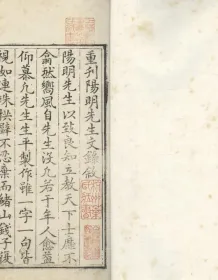 重刊陽明先生文錄敘
陽明先生以致良知立教天下士靡不
翕然嚮風自先生沒凡若干年人愈益
仰慕凡先生生平製作雖一字一句皆
視如連珠拱璧不忍棄而緒山錢子復